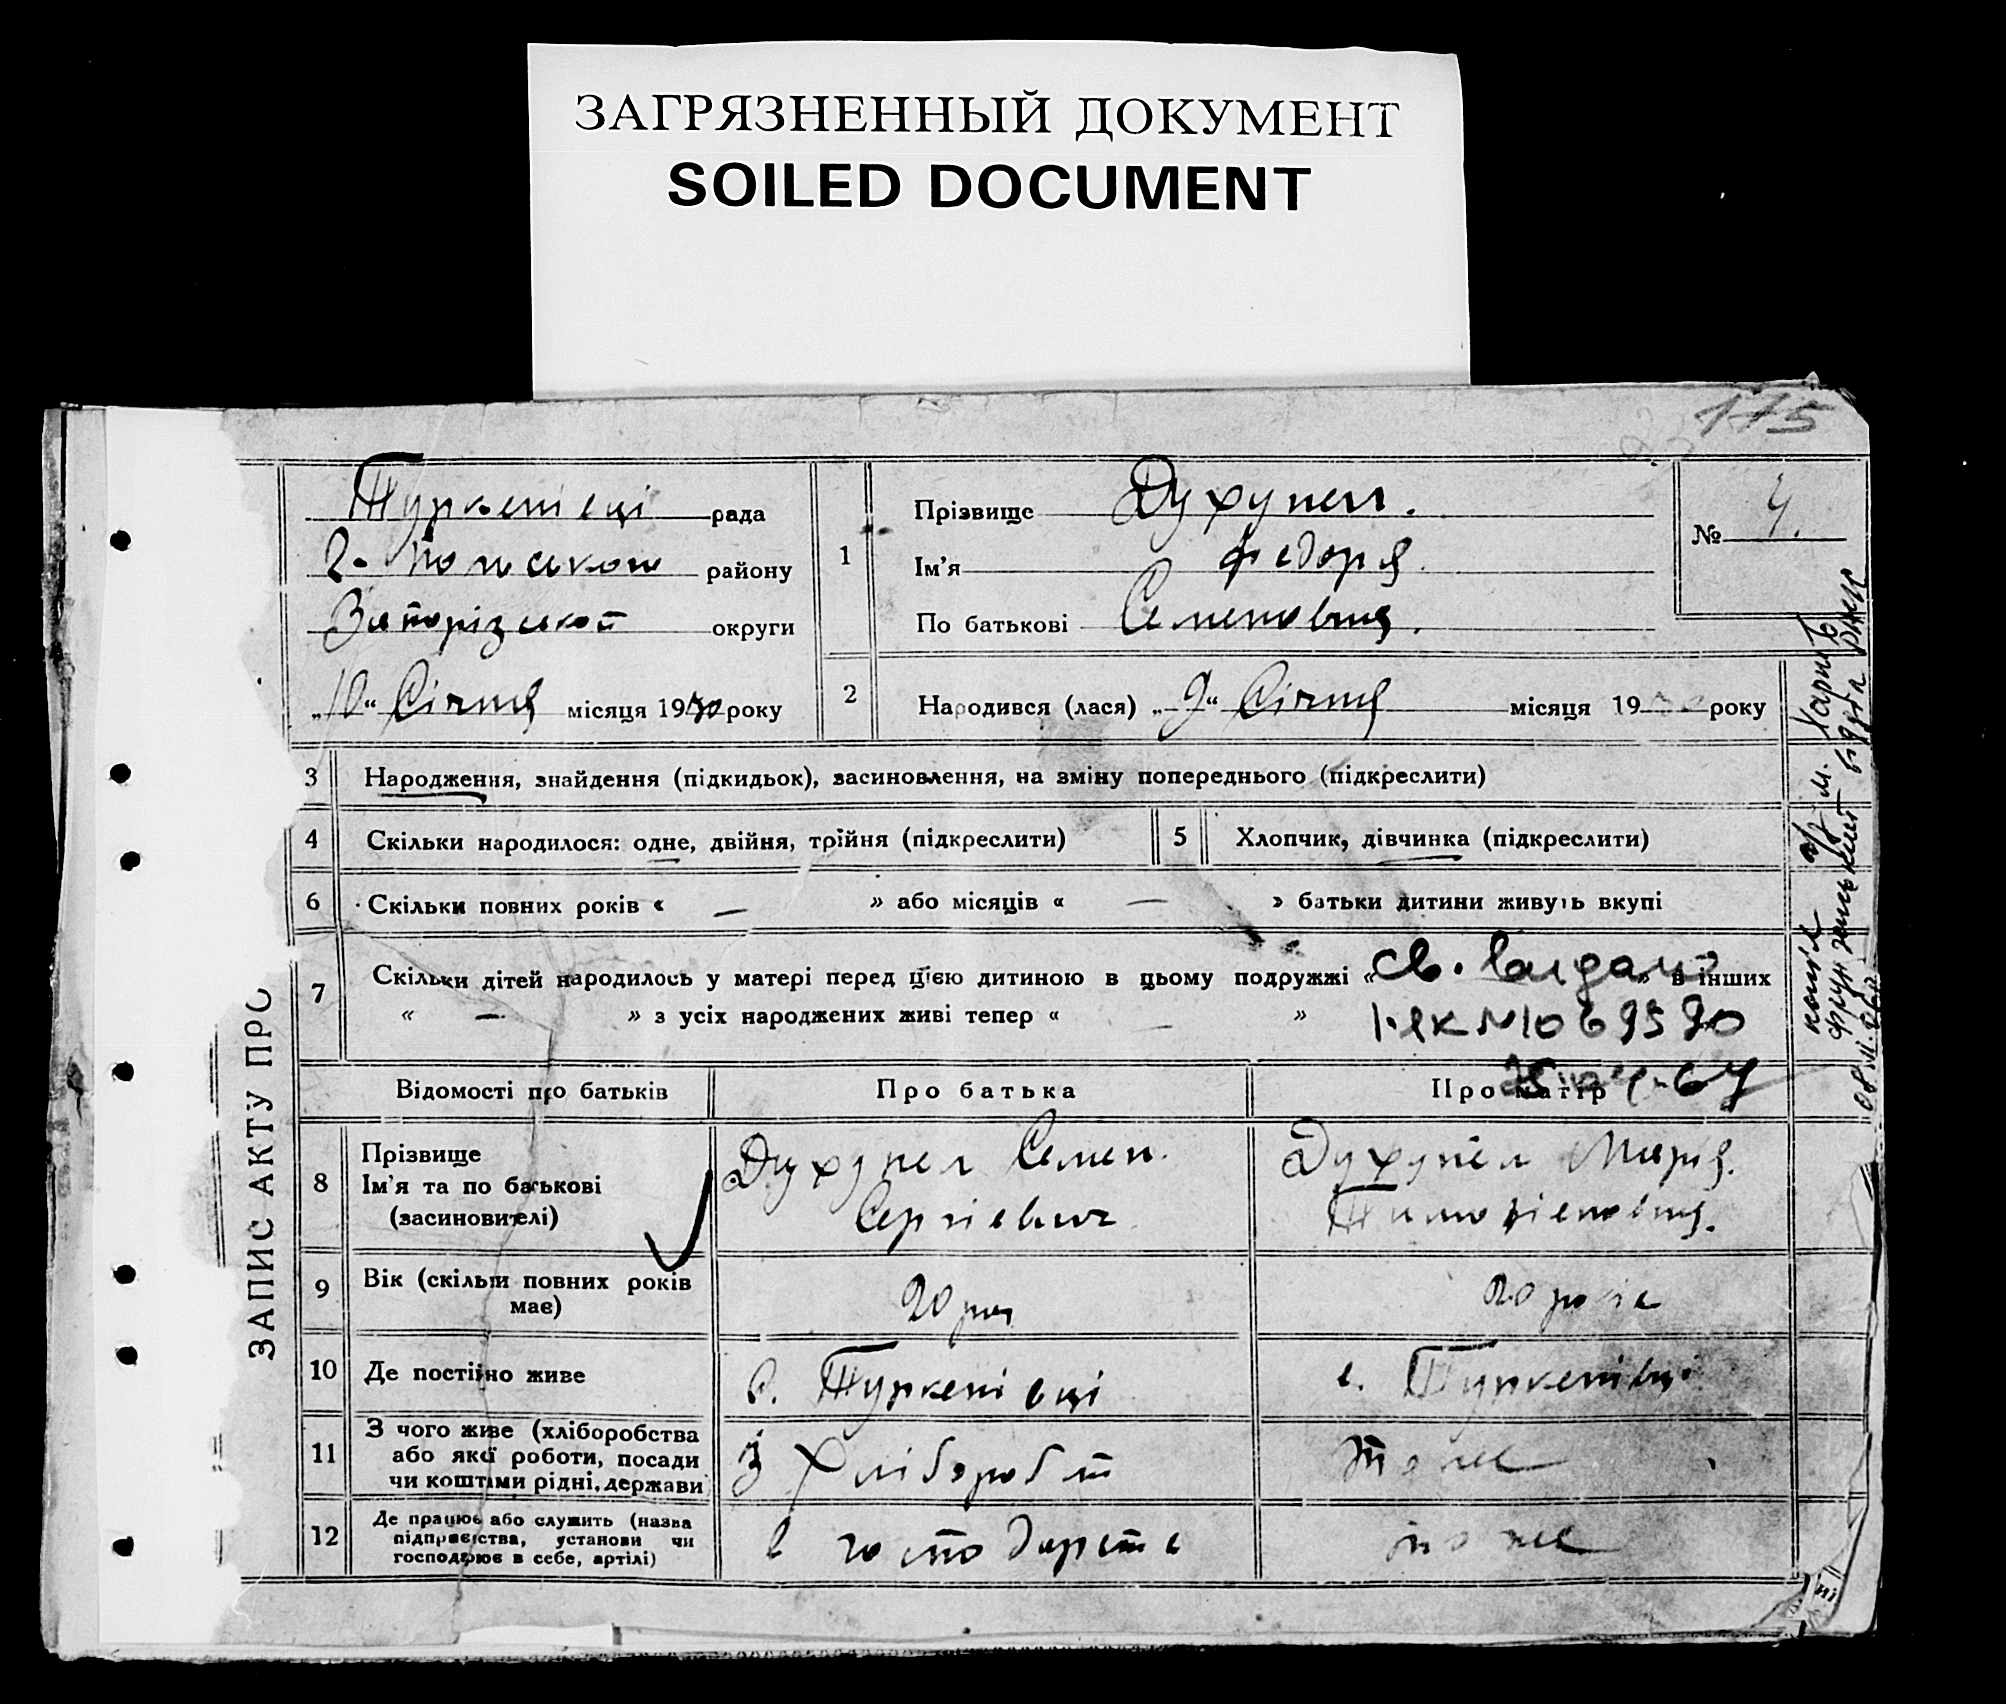 ЗАГРЯЗНЕННЫЙ ДОКУМЕНТ
SOILED DOCUMENT
175
Туркенівці рада
району
Запорізької округи
„10“ Січня місяця 1930 року
1
Прізвище Духупел.
Ім'я Федоря.
По батькові Семеновна.
№ 4.
2
Народився (лася) „9“ Січня місяця 19 року
3 Народження, знайдення (підкидьок), засиновлення, на зміну попереднього (підкреслити)
4 Скільки народилося: одне, двійня, трійня (підкреслити) 5 Хлопчик, дівчинка (підкреслити)
6 Скільки повних років « — » або місяців « — » батьки дитини живуть вкупі
7 Скільки дітей народилось у матері перед цією дитиною в цьому подружжі « » в інших
« — » з усіх народжених живі тепер « — »
Св. выдано
Відомості про батьків Про батька Про матір
8 Прізвище
Ім'я та по батькові
(засиновителі)
Духупел Семен.
Сергієвич
Духупел Марія.
Тимофіеновна.
9 Вік (скільки повних років
має)
20 рок
20 років
10 Де постійно живе
с. Туркенівці
с. Туркенівці
11 З чого живе (хліборобства
або якої роботи, посади
чи коштами рідні, держави
З Хлібороб
тоже
12 Де працює або служить (назва
підприємства, установи чи
господарює в себе, артілі)
в господарств
тоже
ЗАПИС АКТУ ПРО
копія